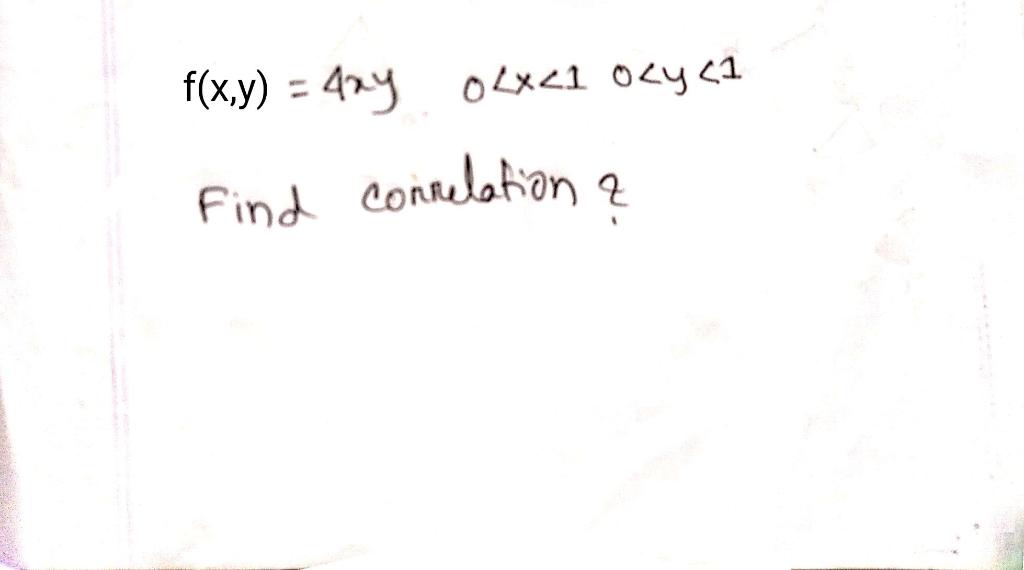 f(x,y) = 4xy 0<x<1 0<y<1
Find correlation ?